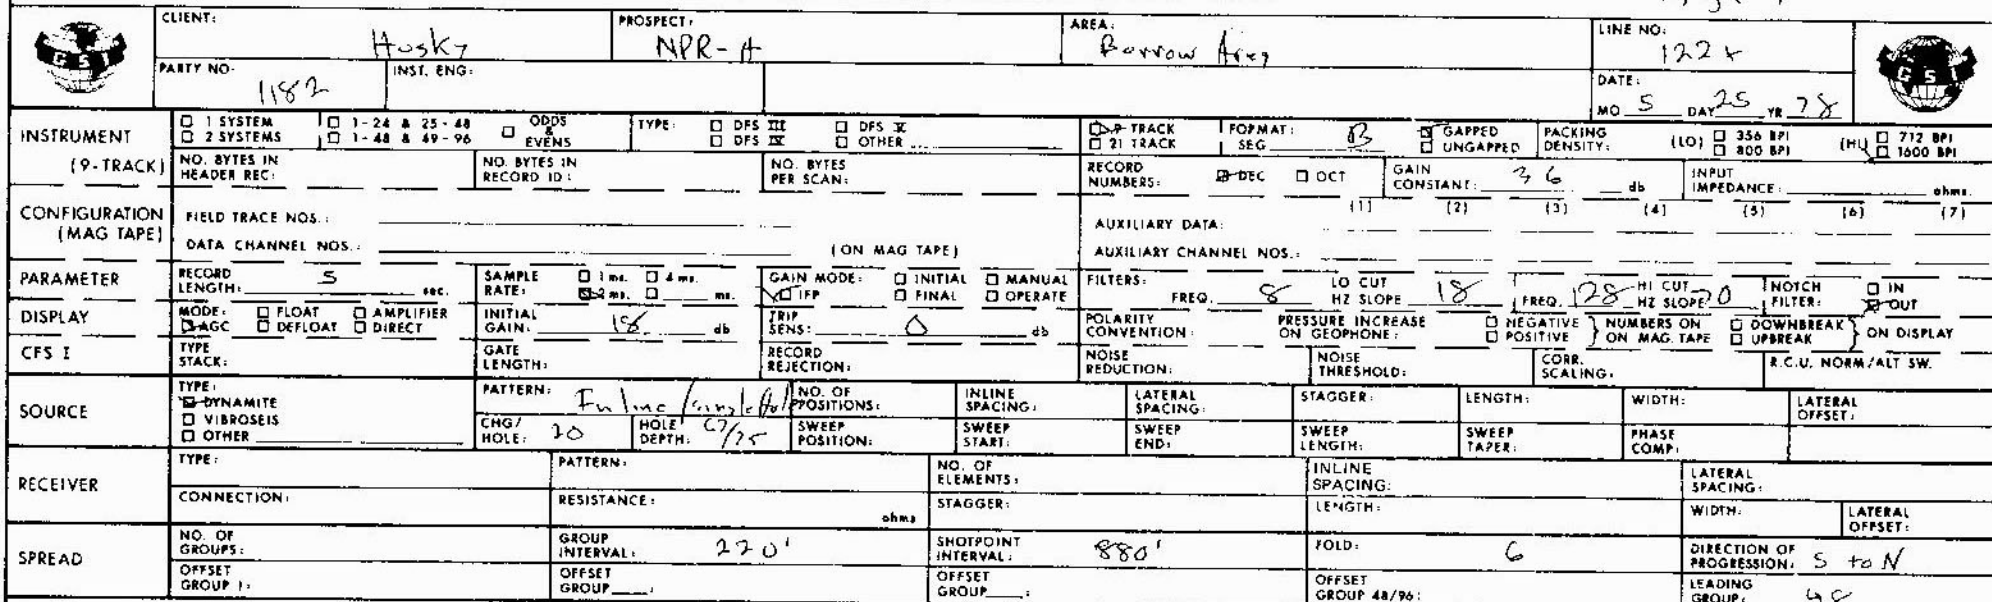 CLIENT: Husky PROSPECT: NPR-A AREA: Barrow Area LINE NO:
GSI PARTY NO. 1182 INST. ENG: DATE: MO 5 DAY 25 YR 78 GSI
INSTRUMENT (9-TRACK)
□ 1 SYSTEM □ 1-24 & 25-48 □ ODDS & EVENS TYPE: □ DFS III □ DFS V 9 TRACK FORMAT: SEG B GAPPED PACKING DENSITY: (LO) □ 356 BPI (HI) □ 712 BPI
□ 2 SYSTEMS □ 1-48 & 49-96 □ DFS IV □ OTHER □ 21 TRACK □ UNGAPPED □ 800 BPI □ 1600 BPI
NO. BYTES IN HEADER REC: NO. BYTES IN RECORD ID: NO. BYTES PER SCAN: RECORD NUMBERS: DEC □ OCT GAIN CONSTANT: 36 db INPUT IMPEDANCE: ohms.
CONFIGURATION (MAG TAPE)
FIELD TRACE NOS.: AUXILIARY DATA: (1) (2) (3) (4) (5) (6) (7)
DATA CHANNEL NOS.: (ON MAG TAPE) AUXILIARY CHANNEL NOS.:
PARAMETER RECORD LENGTH: 5 sec. SAMPLE RATE: □ 1 ms. □ 4 ms. 2 ms. □ ms. GAIN MODE: □ INITIAL □ MANUAL IFP □ FINAL □ OPERATE FILTERS: FREQ. 8 LO CUT HZ SLOPE 18 FREQ. 128 HI CUT HZ SLOPE 70 NOTCH FILTER: □ IN OUT
DISPLAY MODE: □ FLOAT □ AMPLIFIER AGC □ DEFLOAT □ DIRECT INITIAL GAIN: 18 db TRIP SENS: 0 db POLARITY CONVENTION: PRESSURE INCREASE ON GEOPHONE: □ NEGATIVE □ POSITIVE } NUMBERS ON ON MAG. TAPE □ DOWNBREAK □ UPBREAK } ON DISPLAY
CFS I TYPE STACK: GATE LENGTH: RECORD REJECTION: NOISE REDUCTION: NOISE THRESHOLD: CORR. SCALING: R.C.U. NORM/ALT SW.
SOURCE TYPE: DYNAMITE □ VIBROSEIS □ OTHER
PATTERN: Inline/single hole NO. OF POSITIONS: INLINE SPACING: LATERAL SPACING: STAGGER: LENGTH: WIDTH: LATERAL OFFSET:
CHG/HOLE: 20 HOLE DEPTH: 67/75 SWEEP POSITION: SWEEP START: SWEEP END: SWEEP LENGTH: SWEEP TAPER: PHASE COMP:
RECEIVER TYPE: PATTERN: NO. OF ELEMENTS: INLINE SPACING: LATERAL SPACING:
CONNECTION: RESISTANCE: ohms STAGGER: LENGTH: WIDTH: LATERAL OFFSET:
SPREAD NO. OF GROUPS: GROUP INTERVAL: 220' SHOTPOINT INTERVAL: 880' FOLD: 6 DIRECTION OF PROGRESSION: S to N
OFFSET GROUP 1: OFFSET GROUP ___: OFFSET GROUP ___: OFFSET GROUP 48/96: LEADING GROUP: